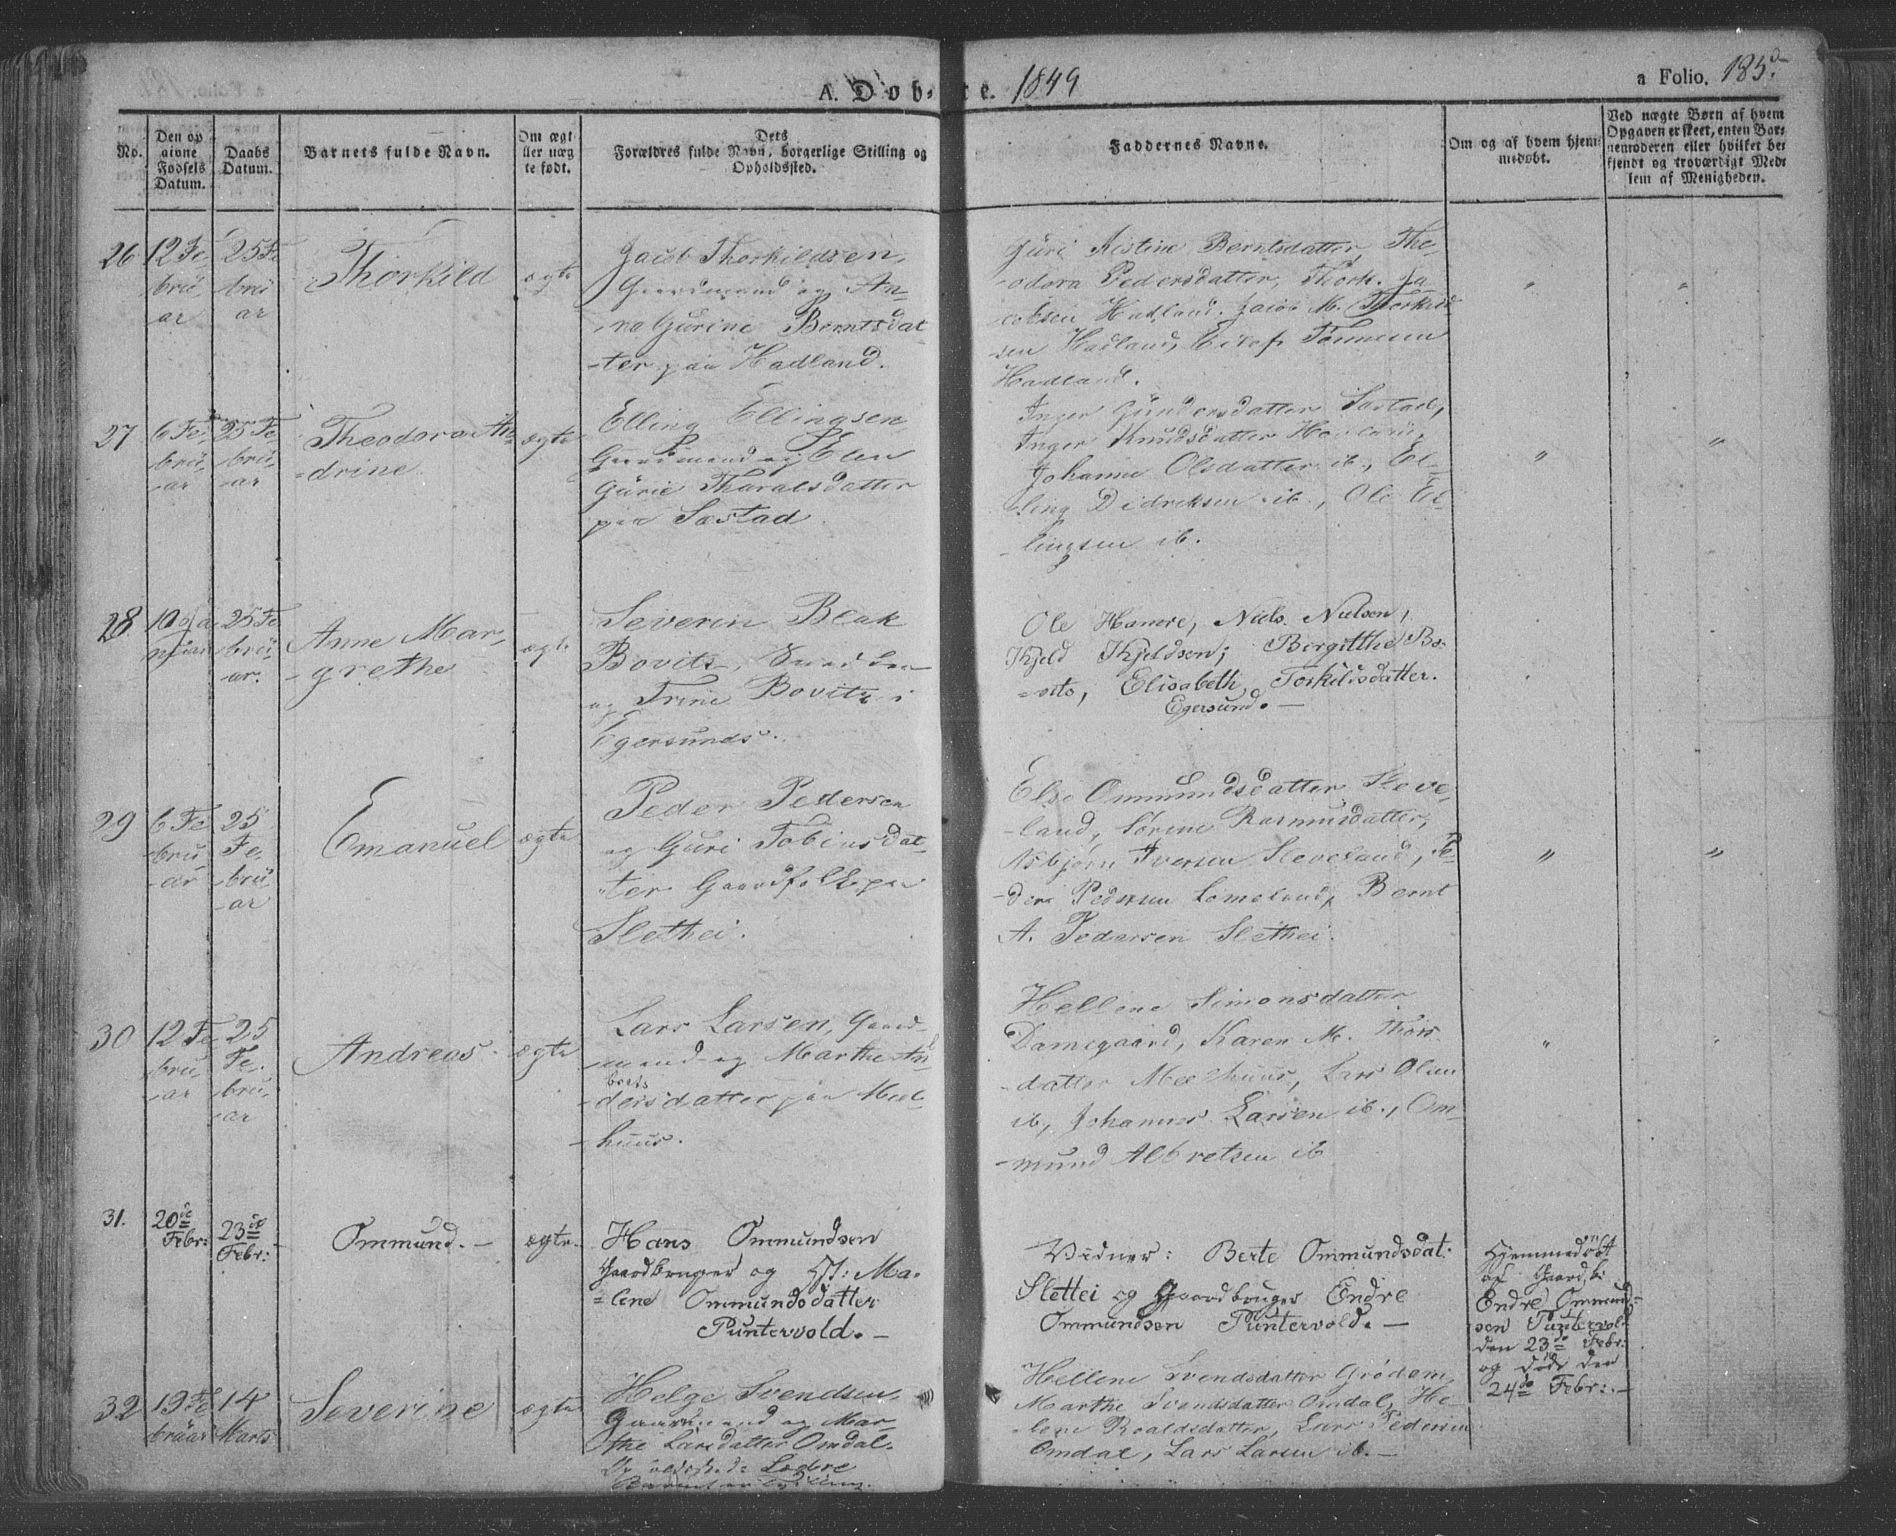 A. Dob- te. 1849
a Folio. 185.
No.
Den op
givne
Fødsels
Datum.
Daabs
Datum.
Barnets fulde Navn.
Om ægt
ller uæg
te født.
Dets
Forældres fulde Navn, borgerlige Stilling og
Opholdssted.
Faddernes Navne.
Om og af hvem hjem
medøbt.
Ved uægte Børn af hvem
Opgaven er skeet, enten Bar-
nemoderen eller hvilket be
kjendt og troværdigt Med-
lem af Menigheden.
26
12 Fe
bru-
ar
25 Fe
bru
ar
Thorkild
ægte
Jacob Thorkildsen,
Gaardmand og An-
na Gurine Berntsdat
-ter paa Hadland.
Guri Kistine Berntsdatter, The-
-odora Pedersdatter, Thork. Ja-
cobsen Hadland. Jacob M. Thorkild
sen Hadland, Eilef Tønnesen
Hadland.
"
"
27
6 Fe
bru-
-ar
25 Fe
bru-
-ar
Theodora An-
-drine
ægte
Elling Ellingsen
Gaardmand og Elen
Gurie Tharalsdatter
paa Sæstad
Inger Gundersdatter Sæstad,
Inger Knudsdatter
Johanne Olsdatter ib., El-
-ling Didriksen ib., Ole El-
-lingsen ib.
"
"
28
10
25 Fe
bru-
-ar.
Anne Mar-
-grethe
ægte
Severin Bleak
Bovitz,
og Trine Bovitz i
Egersunds.
Ole Hanore, Niels Nielsen,
Kjeld Kjeldsen; Bergitthe Bo-
-vits, Elisabeth Torkildsdatter.
Egersund. —
29
6 Fe
-bru-
-ar
25
Fe-
bru
ar
Emanuel
ægte
Peder Pedersen
og Guri Tobiasdat-
-ter Gaardfolk paa
Slethei.
Else Ommundsdatter Sleve-
-land, Sørine Rasmusdatter,
Asbjørn Iversen Sleveland, Pe-
-der Pedersen Lomeland, Bernt
A. Pedersen Slethei.
"
"
30
12 Fe
bru-
-ar
25
Fe-
-bru-
-ar
Andreas.
ægte
Lars Larsen, Gaard-
mand og Marthe An
breds
-dersdatter paa Mel-
-huus.
Hellene Simonsdatter
Damsgaard, Karen M. Thors-
-datter Melhuus, Lars Olsen
ib, Johannes Larsen ib., Om-
-mund Albretsen ib
"
"
31.
20de
Febr:
23de
Febr:
Ommund. —
ægte.
Hans Ommundsen
Gaardbruger og Hst: Ma-
-lene Ommundsdatter
Puntervold. —
Vidner: Berte Ommundsdat:
Slettei og Gaardbruger Endre
Ommundsen Puntervold. —
Hjemmedøbt
af Gaard. br
Endre Ommund-
sen Puntervol-
den 23de Febr:
og døde den
24de Febr: —
32
19 Fe
bruar
14
Marts
Severine
ægte
Helge Svendsen,
Gaardmand og Mar-
the Larsdatter Omdal.
Hellene Svendsdatter Grødem,
Marthe Svendsdatter Omdal, He-
-lene Roaldsdatter, Lars Pedersen
Omdal, Lars Larsen ib. —